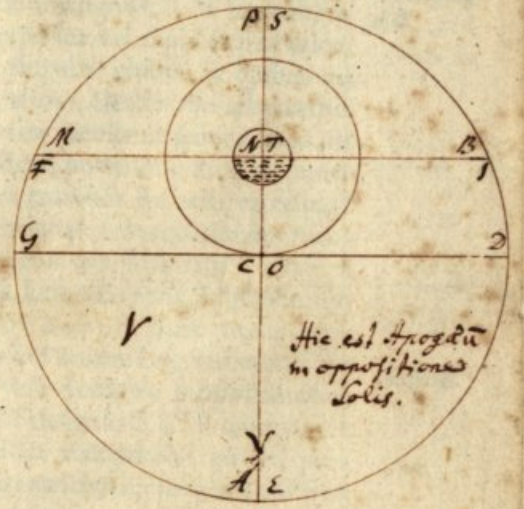 P S
M N T B
F I
G D
C O
V
Hic est Apogæū
in oppositione
Solis.
Y
A E